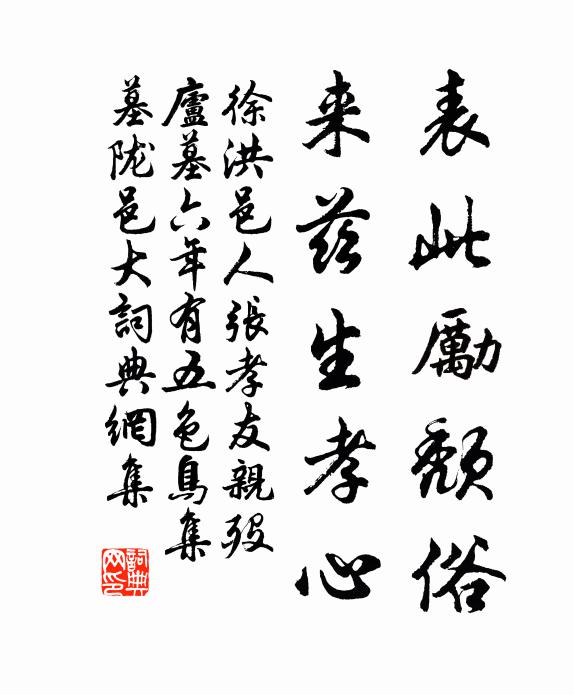 表此勵頽俗
来茲生孝心
徐洪邑人張孝友親殁
廬墓六年有五色鳥集
墓陇邑大詞典網集
詞典
网印